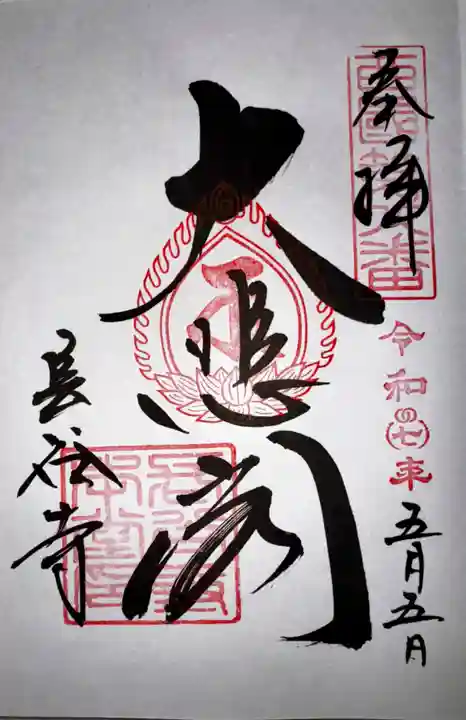 奉拝
令和七年五月五日
大悲閣
長谷寺